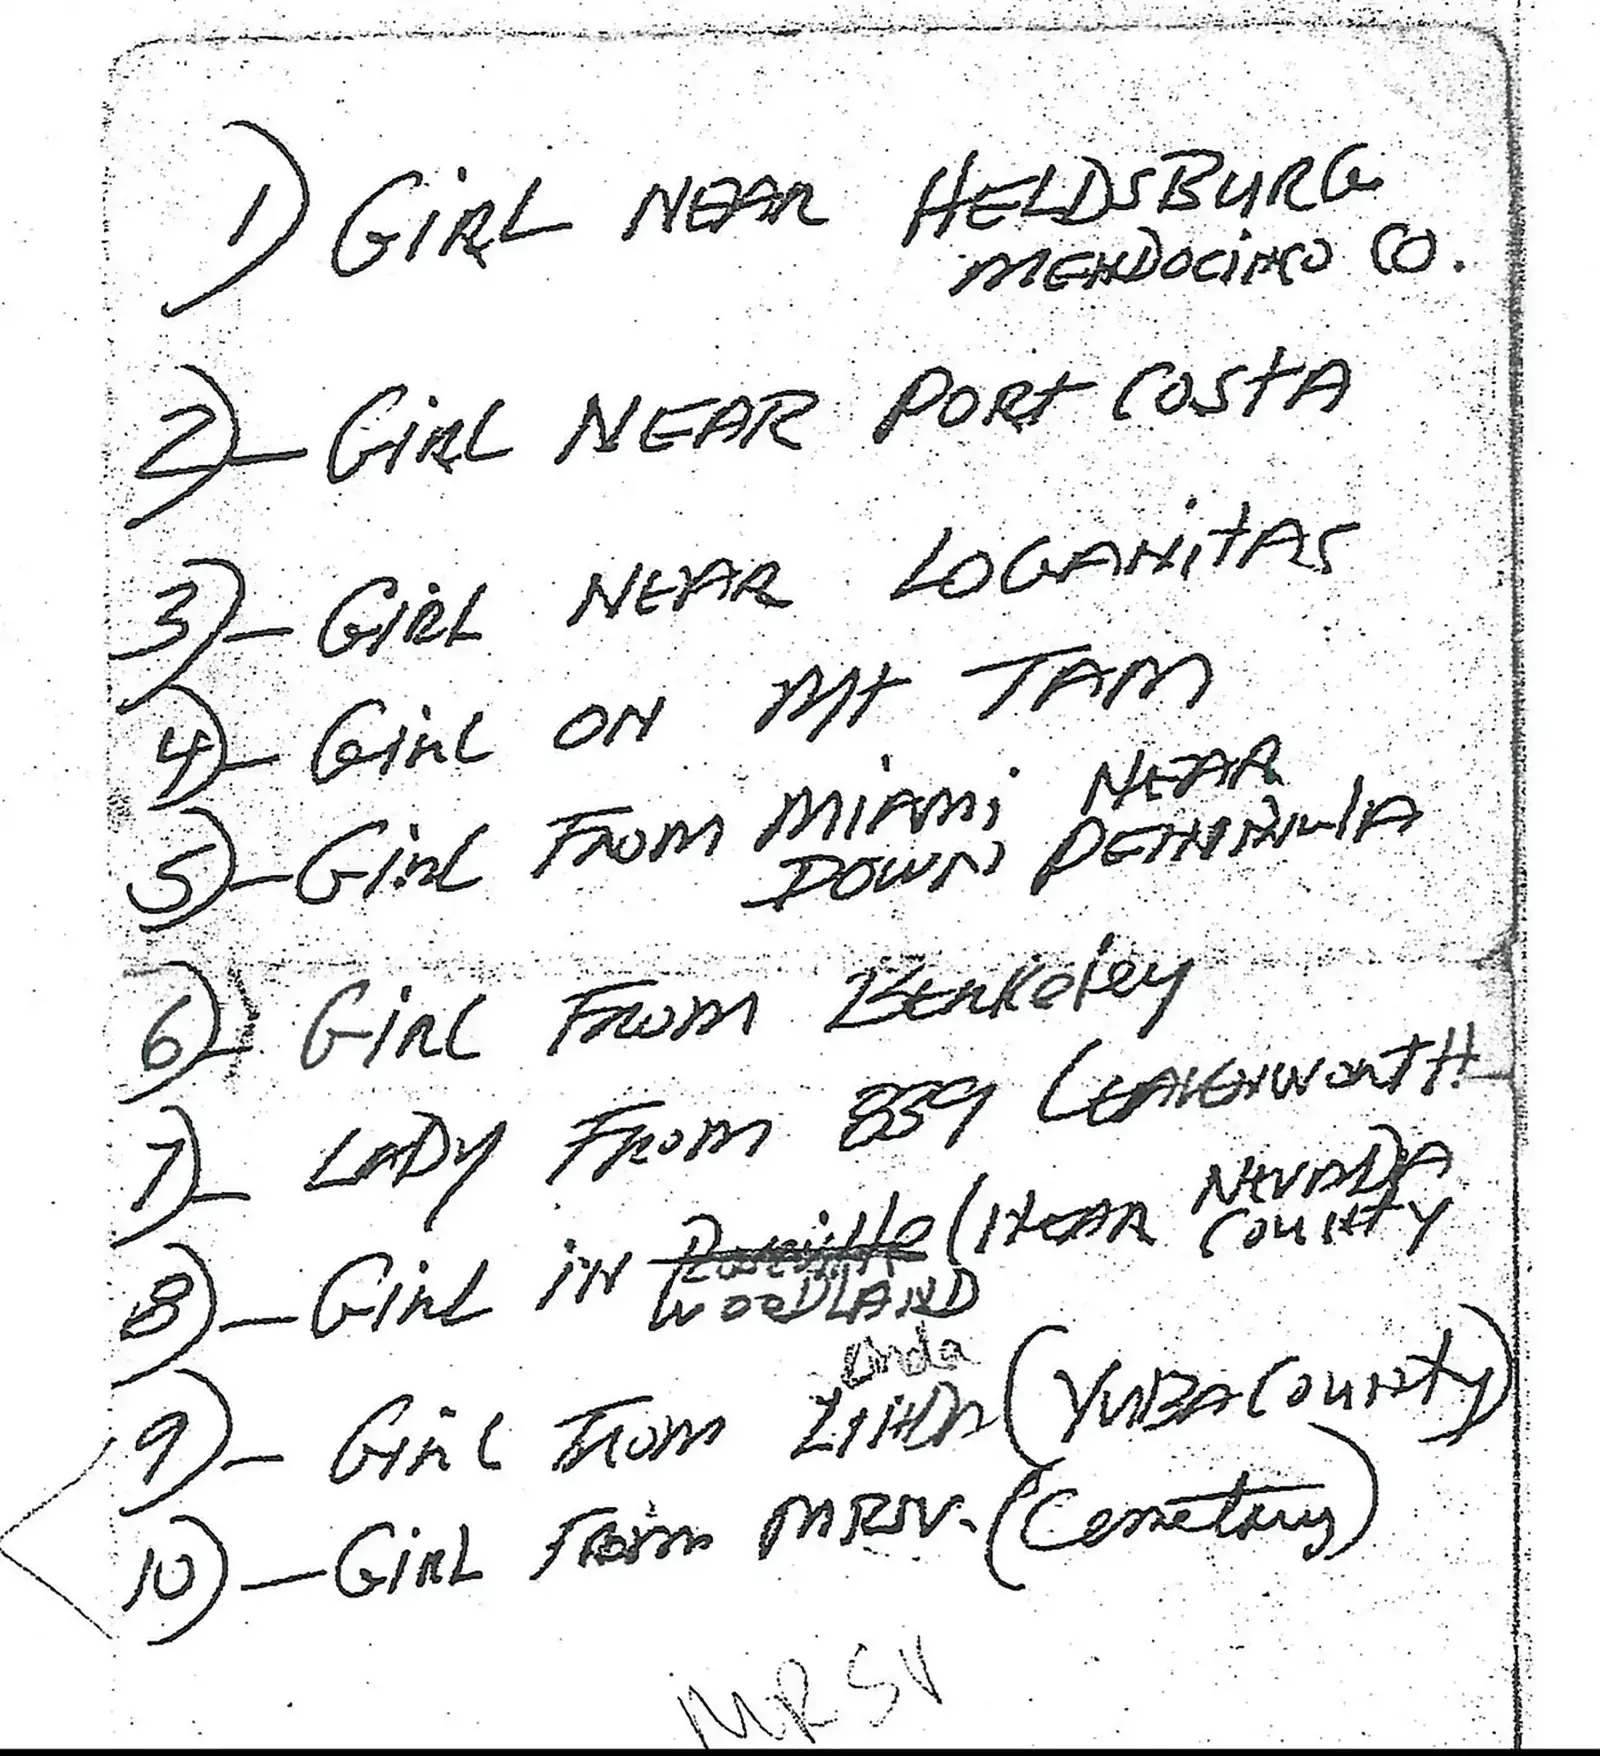 1) GIRL NEAR HELDSBURG
MENDOCINO CO.
2)- GIRL NEAR PORT COSTA
3)- GIRL NEAR LOGANITAS
4)- GIRL ON MT TAM
5)- GIRL FROM MIAMI NEAR
DOWN PENINSULA
6)- GIRL FROM BERKELEY
7)- LADY FROM 839 LEAVENWORTH
8)- GIRL IN (NEAR NEVADA
COUNTY
WOODLAND
Linda
9)- GIRL FROM LINDA (YUBA COUNTY)
10)- GIRL FROM MRSV. (Cemetary)
MRSV